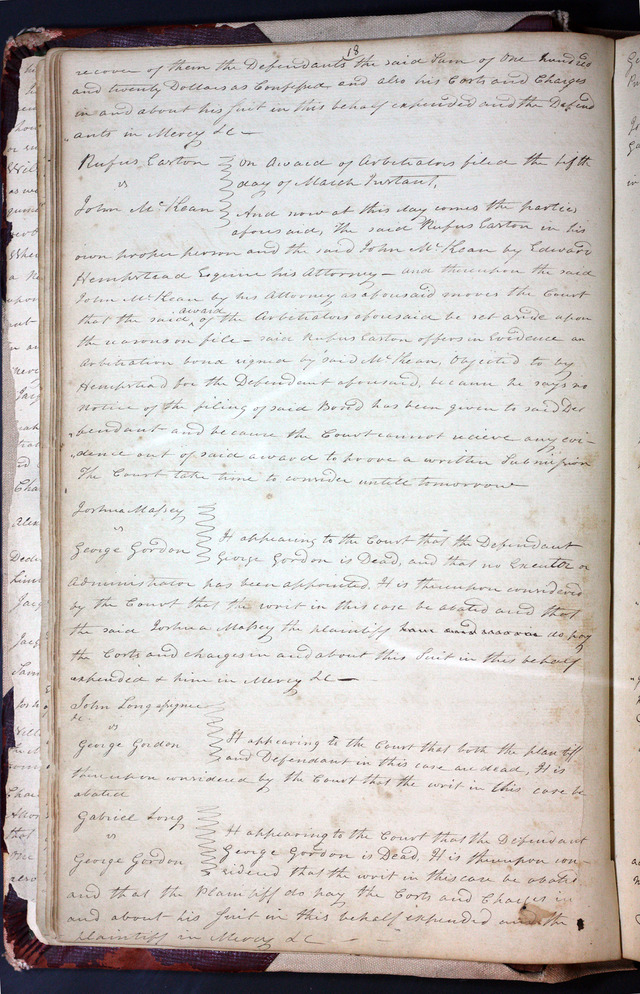 18
recover of them the Defendants the said Sum of One hundred
and twenty Dollars as Confessed and also his Costs and Charges
in and about his Suit in this behalf expended and the Defend
ants in Mercy &c —
Rufus Easton
vs
John McKean
On Award of Arbitrators filed the fifth
day of March Instant,
And now at this day comes the parties
aforesaid, the said Rufus Easton in his
own proper person and the said John McKean by Edward
Hempstead Esquire his Attorney — and thereupon the said
John McKean by his Attorney as aforesaid moves the Court
that the said award of the Arbitrators aforesaid be set aside upon
the reasons on file — said Rufus Easton offers in Evidence an
Arbitration bond signed by said McKean, Objected to by
Hempstead for the Defendant aforesaid, because he says no
notice of the filing of said Bond has been given to said De-
fendant and because the Court cannot recieve any evi-
dence out of said award to prove a written Submission
The Court take time to consider untill tomorrow
Joshua Massey
vs
George Gordon
It appearing to the Court that the Defendant
George Gordon is Dead, and that no Executor or
Administrator has been appointed. It is thereupon considered
by the Court that the writ in this case be abated and that
the said Joshua Massey the plaintiff do pay
the Costs and charges in and about this Suit in this behalf
expended & him in Mercy &c —
John Long assignee
&c
vs
George Gordon
It appearing to the Court that both the plaintiff
and Defendant in this case are dead, It is
thereupon considered by the Court that the writ in this case be
abated
Gabriel Long
vs
George Gordon
It appearing to the Court that the Defendant
George Gordon is Dead. It is thereupon con-
sidered that the writ in this case be abated
and that the Plaintiff do pay the Costs and Charges in
and about his Suit in this behalf expended and the
plaintiff in Mercy &c — —